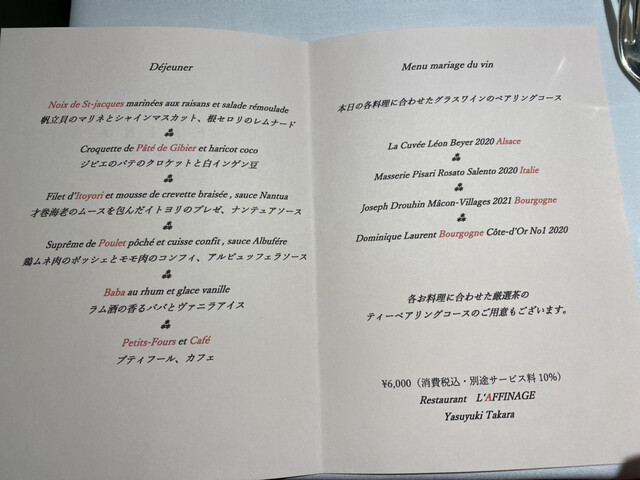 Déjeuner
Noix de St-jacques marinées aux raisans et salade rémoulade
帆立貝のマリネとシャインマスカット、根セロリのレムナード
Croquette de Pâté de Gibier et haricot coco
ジビエのパテのクロケットと白インゲン豆
Filet d'Itoyori et mousse de crevette braisée , sauce Nantua
才巻海老のムースを包んだイトヨリのブレゼ、ナンテュアソース
Suprême de Poulet pôché et cuisse confit , sauce Albufére
鶏ムネ肉のポッシェとモモ肉のコンフィ、アルビュッフェラソース
Baba au rhum et glace vanille
ラム酒の香るババとヴァニラアイス
Petits-Fours et Café
プティフール、カフェ
Menu mariage du vin
本日の各料理に合わせたグラスワインのペアリングコース
La Cuvée Léon Beyer 2020 Alsace
Masserie Pisari Rosato Salento 2020 Italie
Joseph Drouhin Mâcon-Villages 2021 Bourgogne
Dominique Laurent Bourgogne Côte-d'Or No1 2020
各お料理に合わせた厳選茶の
ティーペアリングコースのご用意もございます。
¥6,000（消費税込・別途サービス料 10%）
Restaurant L'AFFINAGE
Yasuyuki Takara